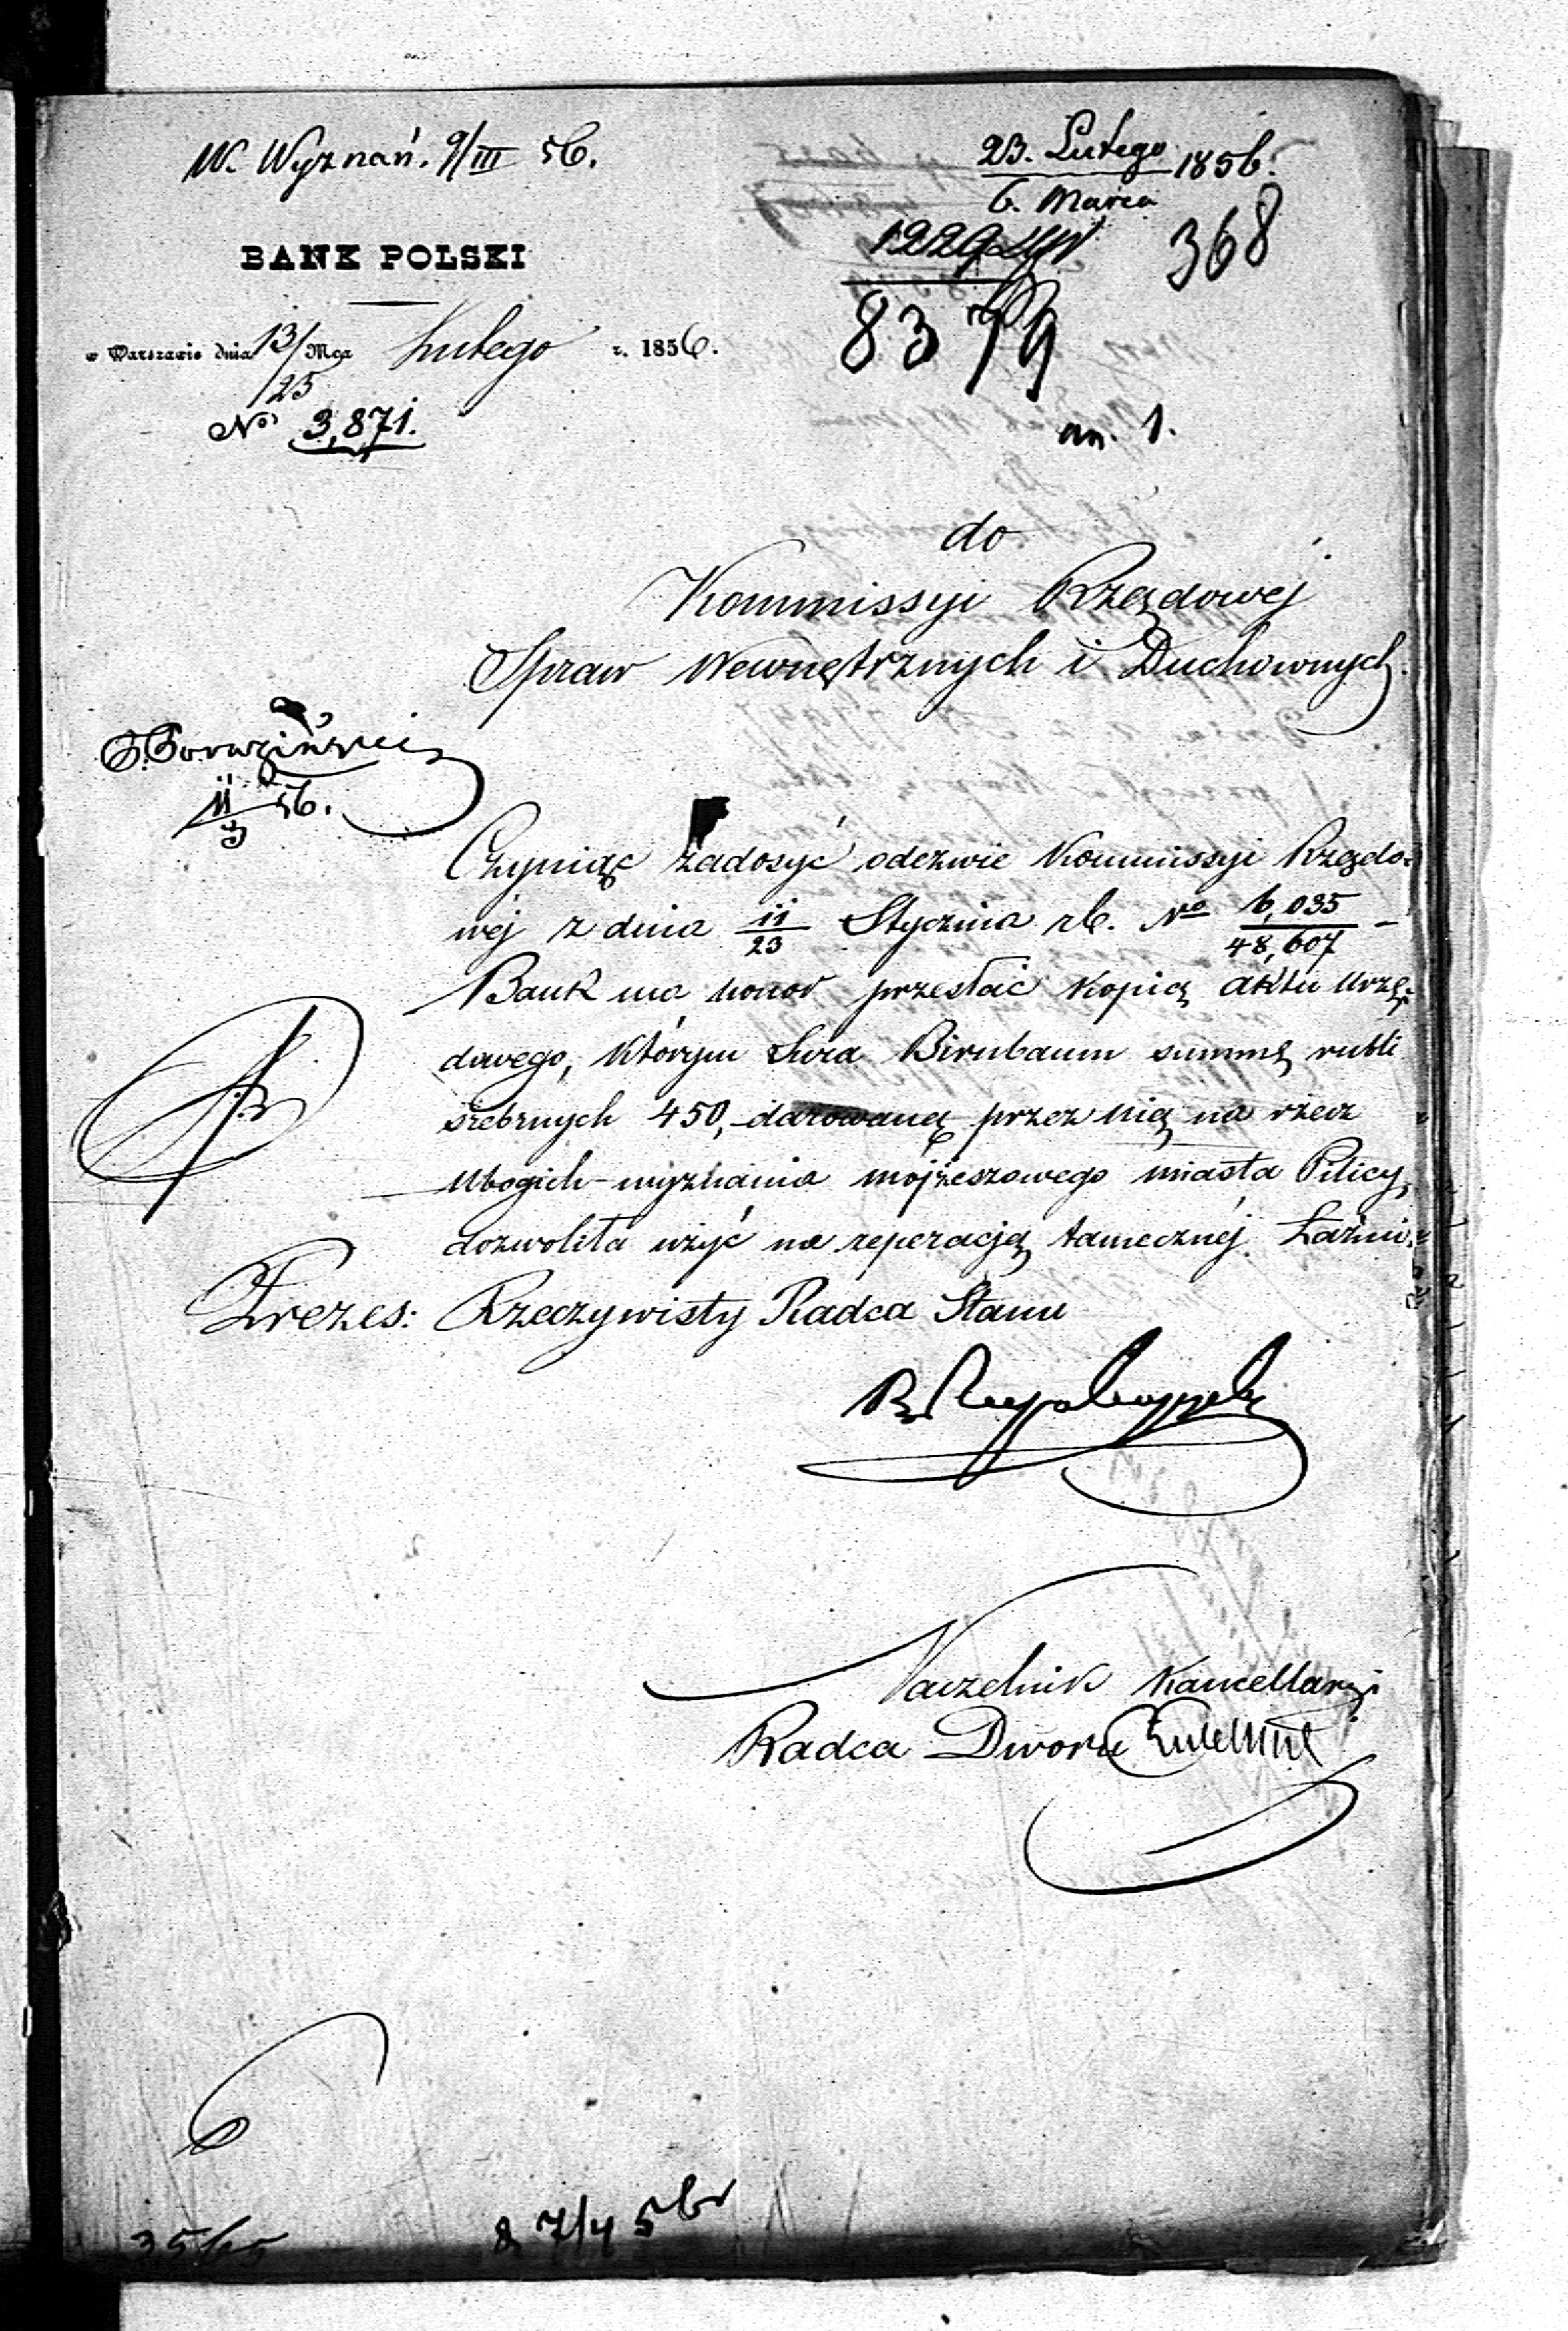 W. Wyznań. 9/III 56.
23. Lutego 1856.
6. Marca
368
BANK POLSKI
8379
w Warszawie dnia 13/25 Mca Lutego r. 1856.
No 3,871.
an. 1.
do
Kommissyi Rządowéj
Spraw Wewnętrznych i Duchownych.
11/3 56.
Czyniąc zadosyć odezwie Kommissyi Rządo-
wéj z dnia 11/23 Stycznia rb. No 6,035/48,607 -
Bank ma honor przesłać kopią aktu urzę-
dowego, którym Sura Birnbaum summę rubli
srebrnych 450, darowaną przez nią na rzecz
Ubogich wyznania mojżeszowego miasta Pilicy,
dozwoliła użyć na reperacją tamecznéj Łaźni.
Prezes: Rzeczywisty Radca Stanu
Naczelnik Kancellaryi
Radca Dworu